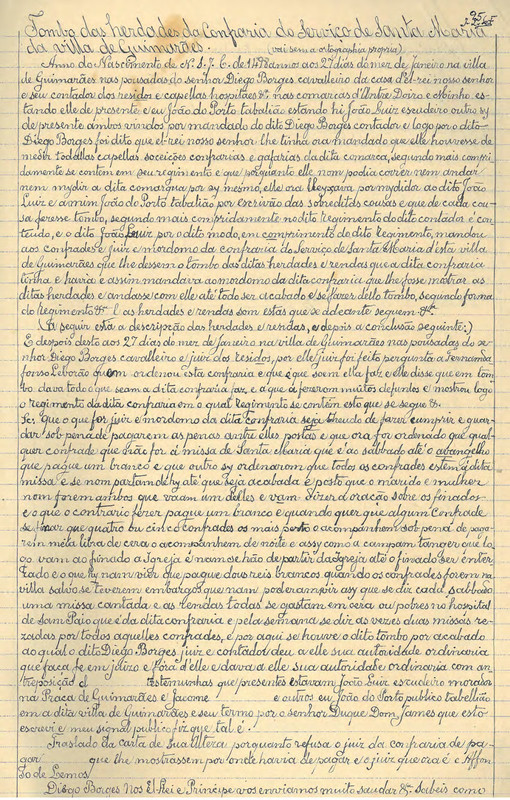 25
Tombo das herdades da Confraria do Serviço de Santa Maria
da villa de Guimarães. (vai sem a ortographia propria)
Anno do Nascimento de N. S. J. C. de 1498 annos aos 27 dias do mez de janeiro na villa
de Guimarães nas pousadas do senhor Diego Borges cavalleiro da casa d'el-rei nosso senhor
e seu contador dos residos e capellas hospitaes &ª nas comarcas d'Antre Doiro e Minho es-
tando elle de presente e eu João do Porto tabalião estando hi João Luiz escudeiro outro sy
de presente ambos vindos por mandado do dito Diego Borges contador e logo por o dito
Diego Borges foi dito que el-rei nosso senhor lhe tinha ora mandado que elle houvesse de
medir todallas capellas soceições confrarias e gafarias da dita comarca, segundo mais compri-
damente se contem em seu regimento e que porquanto elle nom podia correr nem andar
nem mydir a dita comarqua por sy mesmo, elle ora leyxava por mydidor ao dito João
Luiz e a mim João do Porto tabalião por escrivão das sobreditas cousas e que de cada cou-
sa fezesse tombo, segundo mais compridamente no dito regimento do dito contador é con-
teudo, e o dito João Luiz por o dito modo, em comprimento do dito regimento, mandou
aos confrades e juiz e mordomo da confraria do Serviço de Santa Maria d'esta villa
de Guimarães que lhe dessem o tombo das ditas herdades e rendas que a dita confraria
tinha e havia e assim mandava ao mordomo da dita confraria que lhe fosse mostrar as
ditas herdades e andasse com elle até todo ser acabado e se fazer delo tombo, segundo forma
do regimento &ª l as herdades e rendas som estas que se adeante seguem &ª.
(A seguir está a descripção das herdades e rendas, e depois a conclusão seguinte:)
E despois desto aos 27 dias do mez de janeiro na villa de Guimarães nas pousadas do se-
nhor Diego Borges cavalleiro e juiz dos residos, por elle juiz foi feito pergunta a Fernand'a-
fonso Leborão quem ordenou esta confraria e que é que soem ella faz e elle disse que em tom-
bo dava todo que seam a dita confraria faz e a que a fezerom muitos defuntos e mostrou logo
o regimento da dita confraria em o qual regimento se contem esto que se segue &.
It: que o que for juiz e mordomo da dita confraria seja theudo de fazer cumprir e guar-
dar sob pena de pagarem as penas antre elles postas e que ora for ordenado que qual-
quer confrade que não for á missa de Santa Maria que é ao sabbado até o abangelho
que pague um branco e que outro sy ordenarom que todos os confrades estem á dita
missa e se nom partam de hy até que seja acabada e posto que o marido e mulher
nom forem ambos que vaam um delles e vam fazer a oração sobre os finados
e o que o contrario fezer pague um branco e quando quer que algum confrade
se finar que quatro ou cinco confrades os mais perto o acompanhem sob pena de paga-
rem meia libra de cera o acompanhem de noite e assy como a campam tanger que lo-
go vam ao finado a Igreja e nam se hão de partir da Igreja até o finado ser enter-
rado e o que hy nam vier que pague dous reis brancos quando os confrades forem na
villa salvo se teverem embargos que nam poderam pir asy que se diz cada sabbado
uma missa cantada e as rendas todas se gastam em cera ou pobres no hospital
de Sam Paio que é da dita confraria e pela semana se diz as vezes duas missas re-
zadas por todos aquelles confrades, e por aqui se houve o dito tombo por acabado
ao qual o dito Diego Borges juiz e contador deu a elle sua autoridade ordinaria
que faça fe em juizo e fóra d'elle e dava a elle sua autoridade ordinaria com an-
treposição d testemunhas que presentes estavam João Luiz escudeiro morador
na Praça de Guimarães e Jacome e outros eu João do Porto publico tabellião
em a dita villa de Guimarães e seu termo por o senhor Duque Dom James que esto
escrevi e meu signal publico fiz que tal é.
Traslado da carta de Sua Alteza porquanto refusa o juiz da confraria de pa-
gar que lhe mostrassem por onde havia de pagar e o juiz que ora é Affon-
so de Lemos
Diego Borges Nos El-Rei e Principe vos enviamos muito saudar &ª. Sabeis como